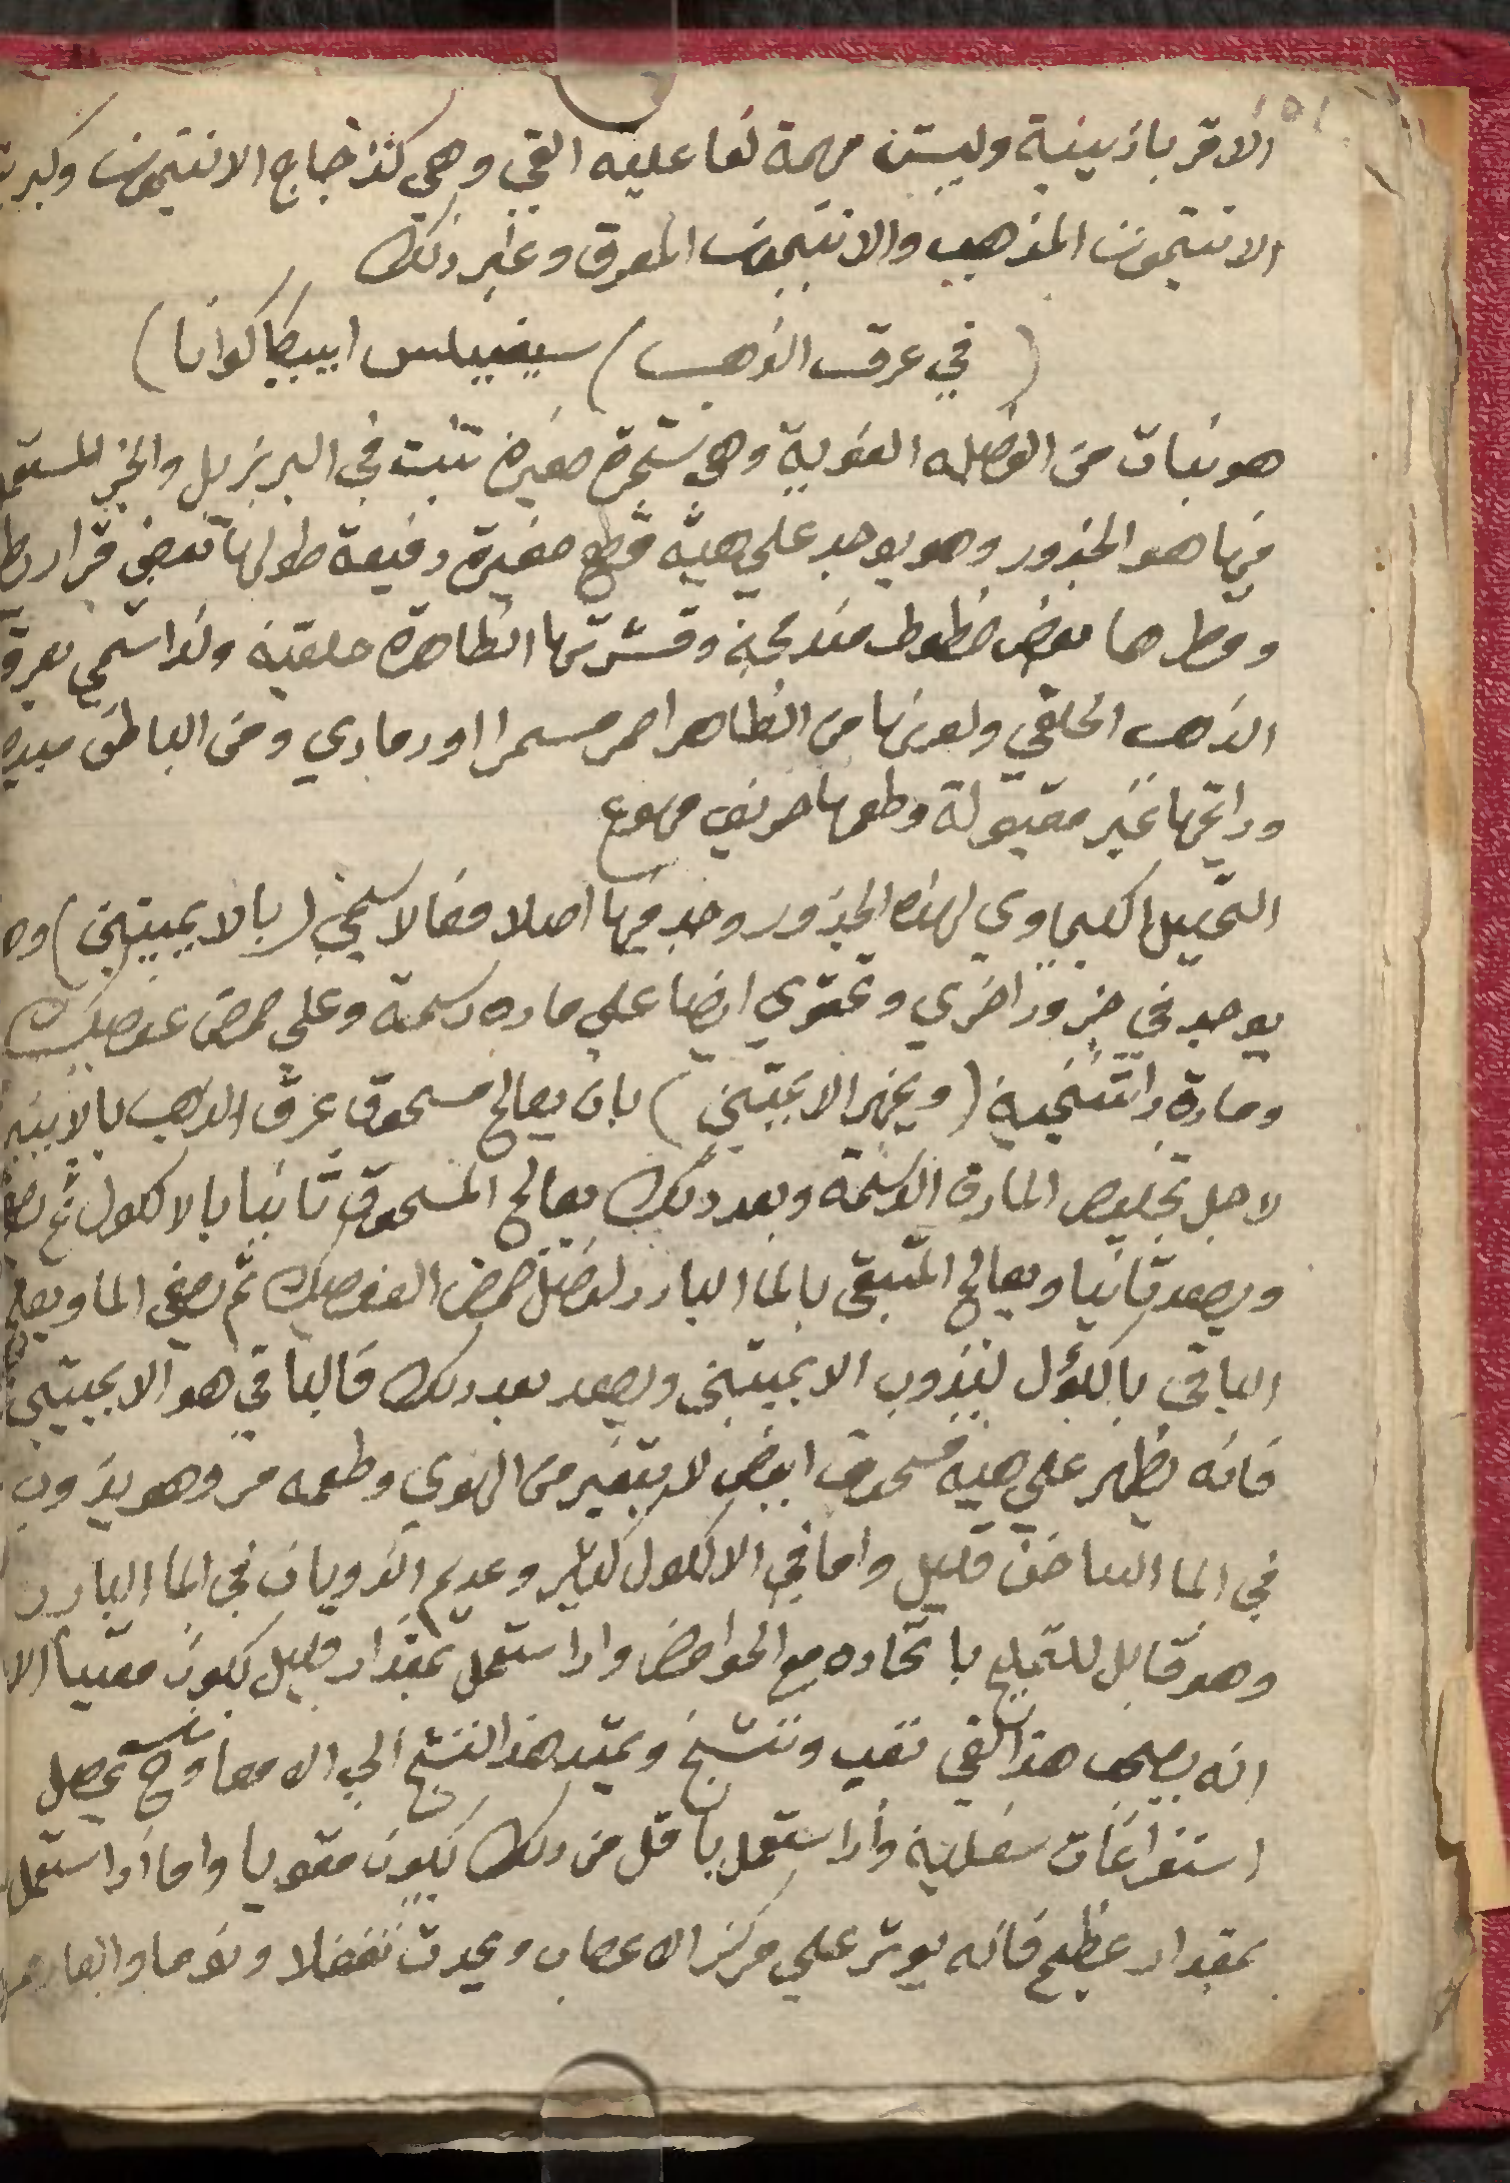 الاقرباذينية وليست مهمة لفاعلية القي وهي كزجاج الانتيمون وكبريت
الانتيمون المذهب والانتيمون المعرق وغير ذلك
(في عرق الذهب) سيفيلس ابيكاكوانا)
هو نبات من الفصيله الفوية وهي شجرة صغيرة تنبت في البريزيل والجزء المستعمل
منها هو الجذور وهو يوجد علي هيئه قطع صغيرة رفيعة طولها بعض قراريط
وقطرها بعض خطوط مندمجة وقشرتها الظاهرة حلقية ولذا سمي بعرق
الذهب الحلقي ولونها من الظاهر احمر مسمرا او رمادي ومن الباطن مبيض
ورائحتها غير مقبولة وطعمها حريف مهوع
التحليل الكيماوي لهذه الجذور وجد فيها اصلا فعالا سمي (بالايميتين) وهو
يوجد في جذور اخري وتحتوي ايضا علي ماده دسمة وعلي حمض عفصيك
ومادة راتنجية (ويجهز الايميتين) بان يعالج مسحوق عرق الذهب بالايتير
لاجل تخليص المادة الدسمة وبعد ذلك يعالج المسحوق ثانيا بالالكول ثم يصفي
ويصعد ثانيا ويعالج المتبقي بالما البارد لفصل حمض العفصيك ثم يصفي الما ويعالج
الباقي بالكؤل ليذوب الايميتين ويصعد بعد ذلك فالباقي هو الايميتين
فانه يظهر علي هيئه مسحوق ابيض لا يتغير من الهوي وطعمه مر وهو يذوب
في الما الساخن قليل واما في الالكول كثير وعديم الذوبان في الما البارد
وهو قابل للتملح باتحاده مع الحوامض واذا ستعمل بمقدار قليل يكون مقيئا الا
انه يصحب هذا القي تعب وتشنج ويمتد هذا التشنج الي الامعا وح يحصل
استفراغات سفلية واذا ستعمل باقل من ذلك يكون مقويا واما اذا ستعمل
بمقدار عظيم فانه يوثر علي مركز الاعصاب ويحدث ثقلا ونوما والهابا